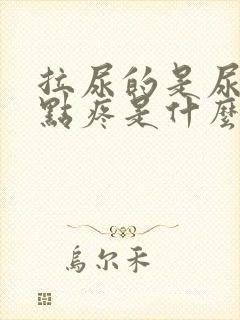 拉尿的是尿
點疼是什麼
烏尔禾